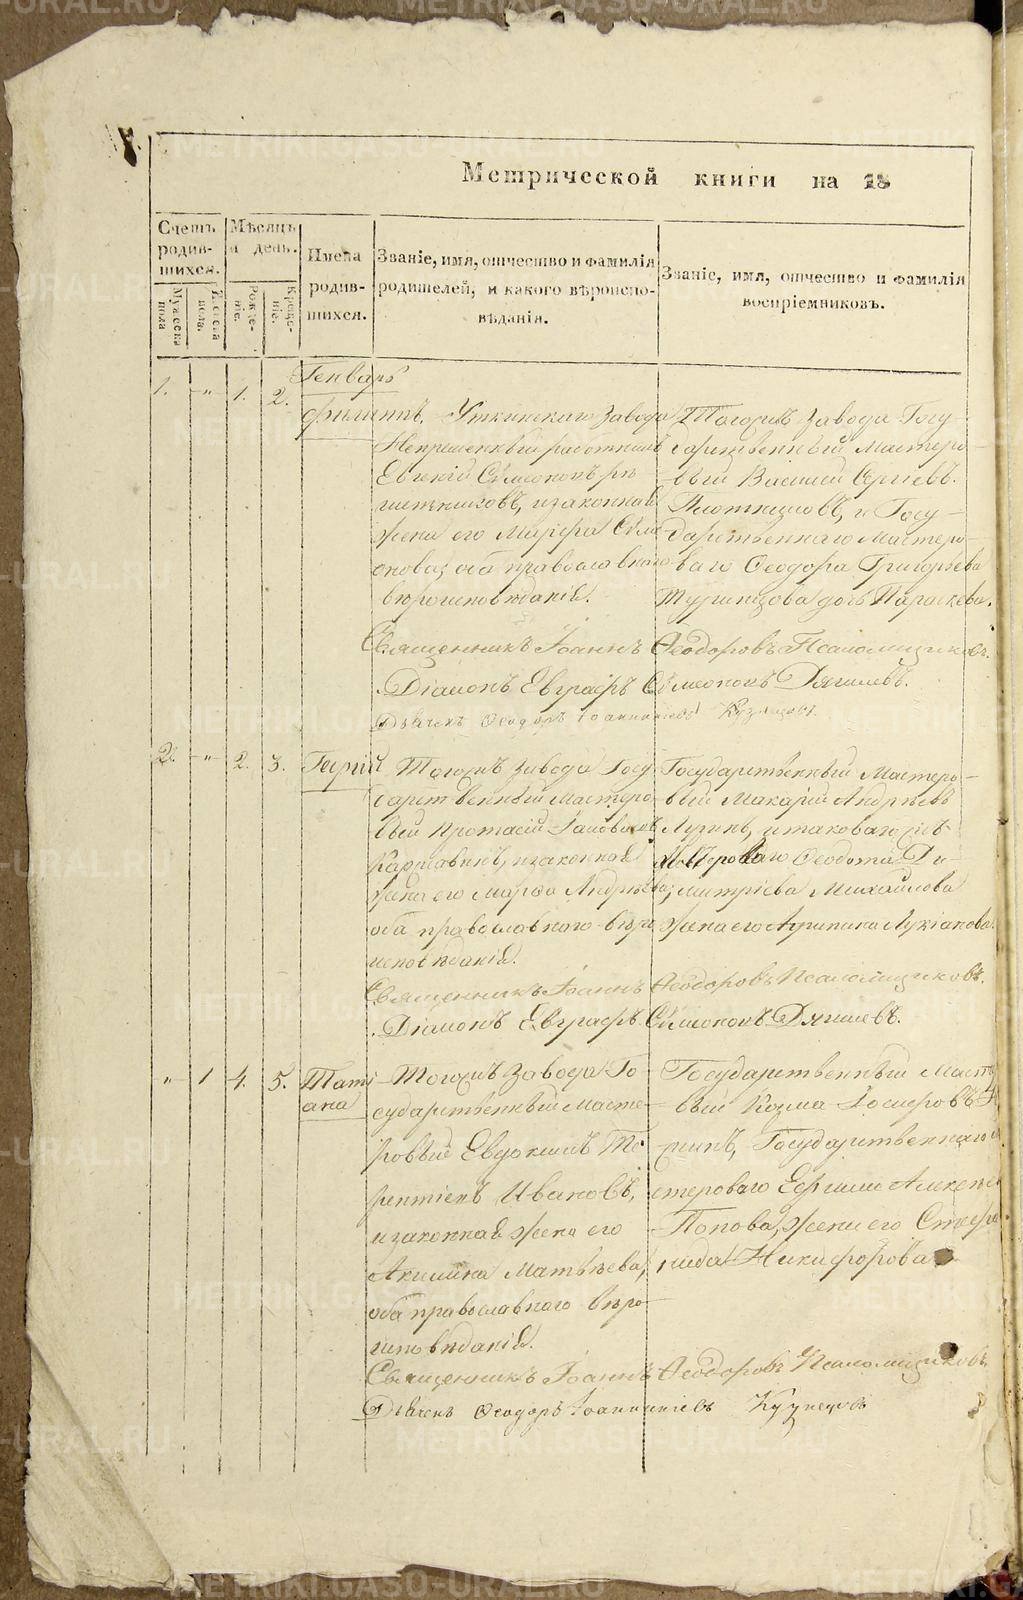 Метрической книги на 18
Счетъ родив-шихся.
Мужеска пола
Женска пола.
Мѣсяцъ и день.
Рожде-ніе.
Креще-ніе.
Имена родив-шихся.
Званіе, имя, отчество и фамилія
родителей, и какого вѣроиспо-
вѣданія.
Званіе, имя, отчество и фамилія
воспріемниковъ.
Генварь
1. -"- 1. 2. Филиппъ.
Уткинскаго завода
работникъ
Евгеній Симеоновъ
и законная
жена его Марфа Симе-
онова, оба православнаго
вѣроисповѣданія.
Тогожъ завода Госу-
дарственный мастеро-
вый Василий Сергіевъ
Плотниковъ, и Госу-
дарственнаго Мастеро-
ваго Ѳеодора Григорьева
дочь Параскева.
Священникъ Іоаннъ Ѳеодоровъ Псаломщиковъ.
Діаконъ Евграфъ Симеоновъ Дягилевъ.
Дьячекъ Ѳеодоръ Іоанникіевъ Кузнецовъ
2. -"- 2. 3. Георгій
Тогожъ завода Госу-
дарственный мастеро-
вый Протасій
и законная
жена его Марфа Андреева,
оба православнаго вѣро-
исповѣданія.
Государственный Мастеро-
вый Макарій Андреевъ
и таковаго жъ
Мастероваго Ѳеодота Ди-
митріева Михайлова
жена его Агрипина Лукіанова.
Священникъ Іоаннъ Ѳеодоровъ Псаломщиковъ.
Діаконъ Евграфъ Симеоновъ Дягилевъ.
-"- 1 4. 5. Тати-
ана
Тогожъ завода Го-
сударственный Масте-
ровый Евдокимъ Те-
рентіевъ Ивановъ,
и законная жена его
Акилина Матвѣева,
оба православнаго вѣро-
исповѣданія.
Государственный Масте
вый Козма
Государственнаго
стероваго Ефима Алексѣе
Попова, жена его Стефа
нида Никифорова
Священникъ Іоаннъ Ѳеодоровъ Псаломщиковъ
Дьячекъ Ѳеодоръ Іоанникіевъ Кузнецовъ
METRIKI.GASO-URAL.RU